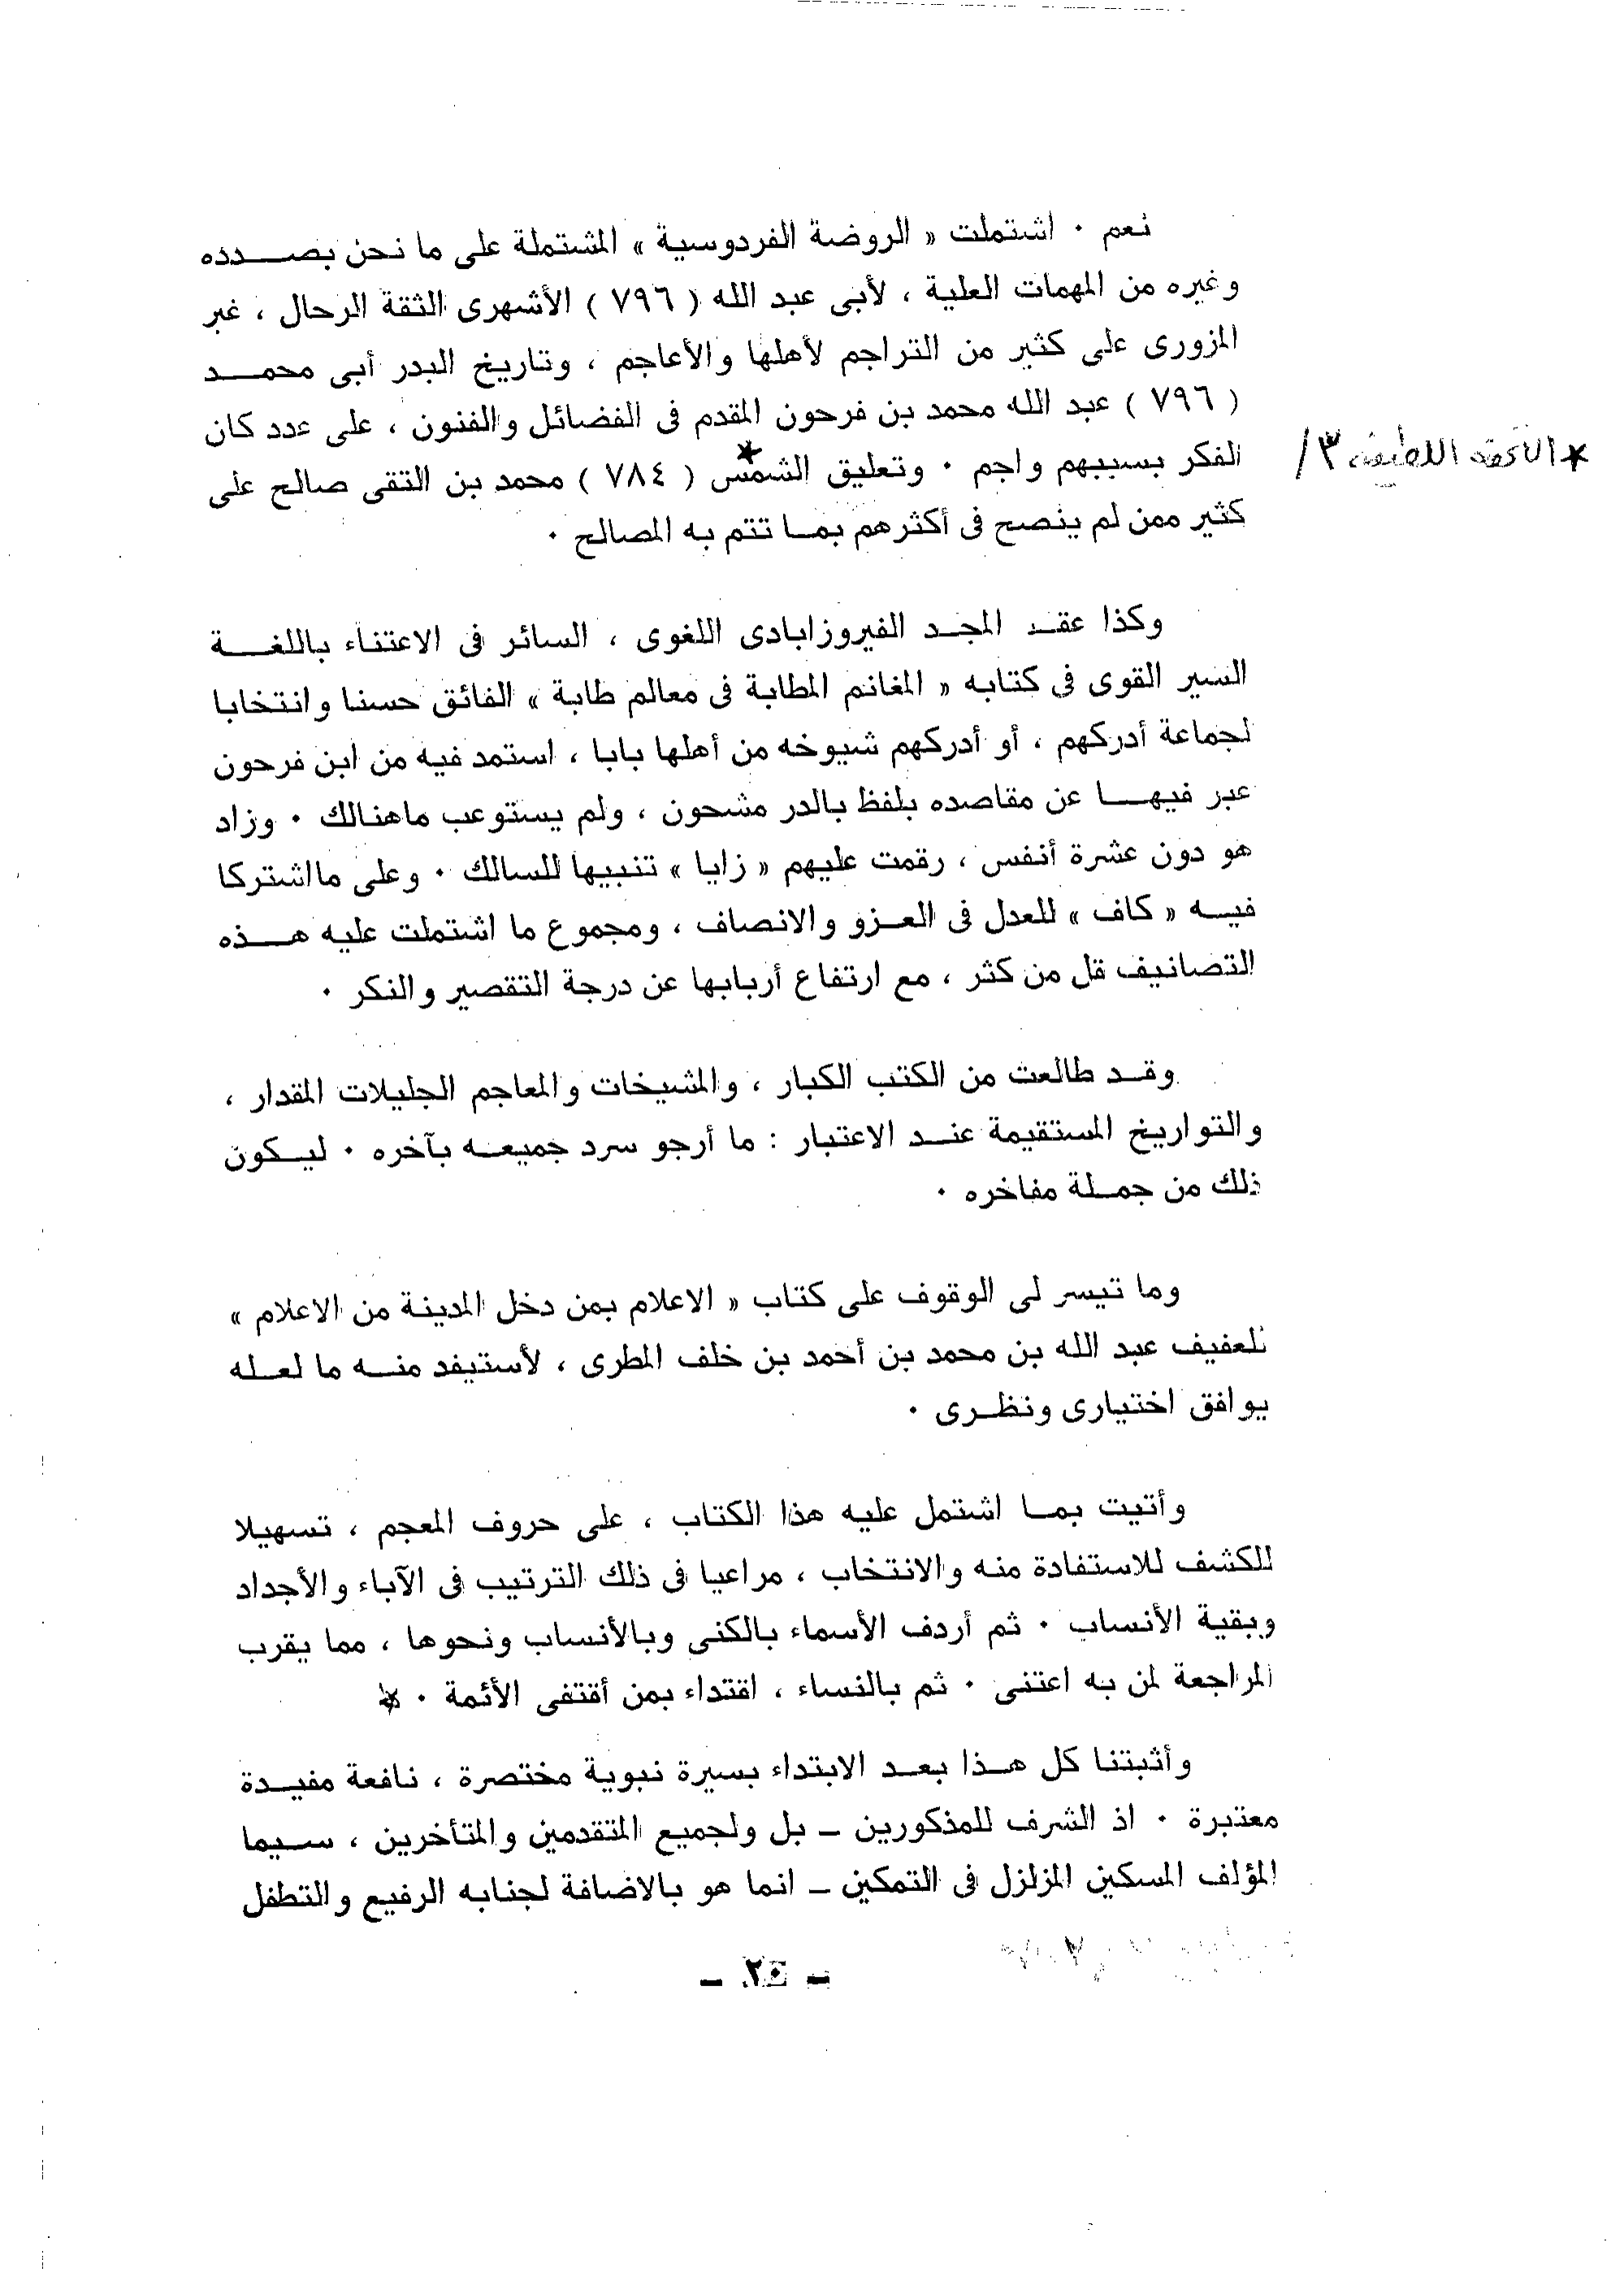 نعم ٠ اشتملت « الروضة الفردوسية » المشتملة على ما نحن بصدده
وغيره من المهمات العلية ، لأبى عبد الله ( ٧٩٦ ) الأشهرى الثقة الرحال ، غبر
المزورى على كثير من التراجم لأهلها والأعاجم ، وتاريخ البدر أبى محمد
( ٧٩٦ ) عبد الله محمد بن فرحون المقدم فى الفضائل والفنون ، على عدد كان
الفكر بسببهم واجم ٠ وتعليق الشمس * ( ٧٨٤ ) محمد بن التقى صالح على
* التحفة اللطيفة ٣/
كثير ممن لم ينصح فى أكثرهم بما تتم به المصالح ٠
وكذا عقد المجد الفيروزابادى اللغوى ، السائر فى الاعتناء باللغة
السير القوى فى كتابه « المغانم المطابة فى معالم طابة » الفائق حسنا وانتخابا
لجماعة أدركهم ، أو أدركهم شيوخه من أهلها بابا ، استمد فيه من ابن فرحون
عبر فيها عن مقاصده بلفظ بالدر مشحون ، ولم يستوعب ماهنالك ٠ وزاد
هو دون عشرة أنفس ، رقمت عليهم « زايا » تنبيها للسالك ٠ وعلى مااشتركا
فيه « كاف » للعدل فى العزو والانصاف ، ومجموع ما اشتملت عليه هذه
التصانيف قل من كثر ، مع ارتفاع أربابها عن درجة التقصير والنكر ٠
وقد طالعت من الكتب الكبار ، والمشيخات والمعاجم الجليلات المقدار ،
والتواريخ المستقيمة عند الاعتبار : ما أرجو سرد جميعه بآخره ٠ ليكون
ذلك من جملة مفاخره ٠
وما تيسر لى الوقوف على كتاب « الاعلام بمن دخل المدينة من الاعلام »
للعفيف عبد الله بن محمد بن أحمد بن خلف المطرى ، لأستيفد منه ما لعله
يوافق اختيارى ونظرى ٠
وأتيت بما اشتمل عليه هذا الكتاب ، على حروف المعجم ، تسهيلا
للكشف للاستفادة منه والانتخاب ، مراعيا فى ذلك الترتيب فى الآباء والأجداد
وبقية الأنساب ٠ ثم أردف الأسماء بالكنى وبالأنساب ونحوها ، مما يقرب
المراجعة لمن به اعتنى ٠ ثم بالنساء ، اقتداء بمن أقتفى الأئمة ٠
وأثبتنا كل هذا بعد الابتداء بسيرة نبوية مختصرة ، نافعة مفيدة
معتبرة ٠ اذ الشرف للمذكورين ــ بل ولجميع المتقدمين والمتأخرين ، سيما
المؤلف المسكين المزلزل فى التمكين ــ انما هو بالاضافة لجنابه الرفيع والتطفل